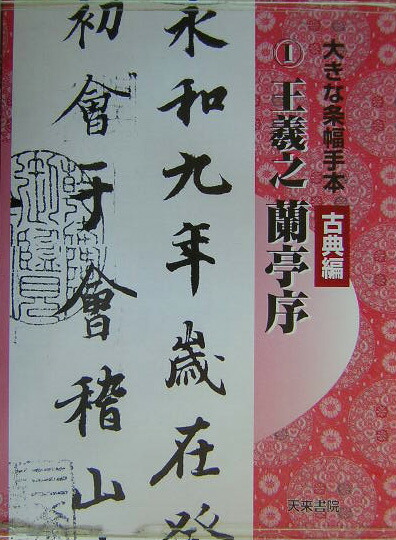 大きな条幅手本
古典編
① 王羲之 蘭亭序
永和九年歳在癸
初會于會稽山
天来書院